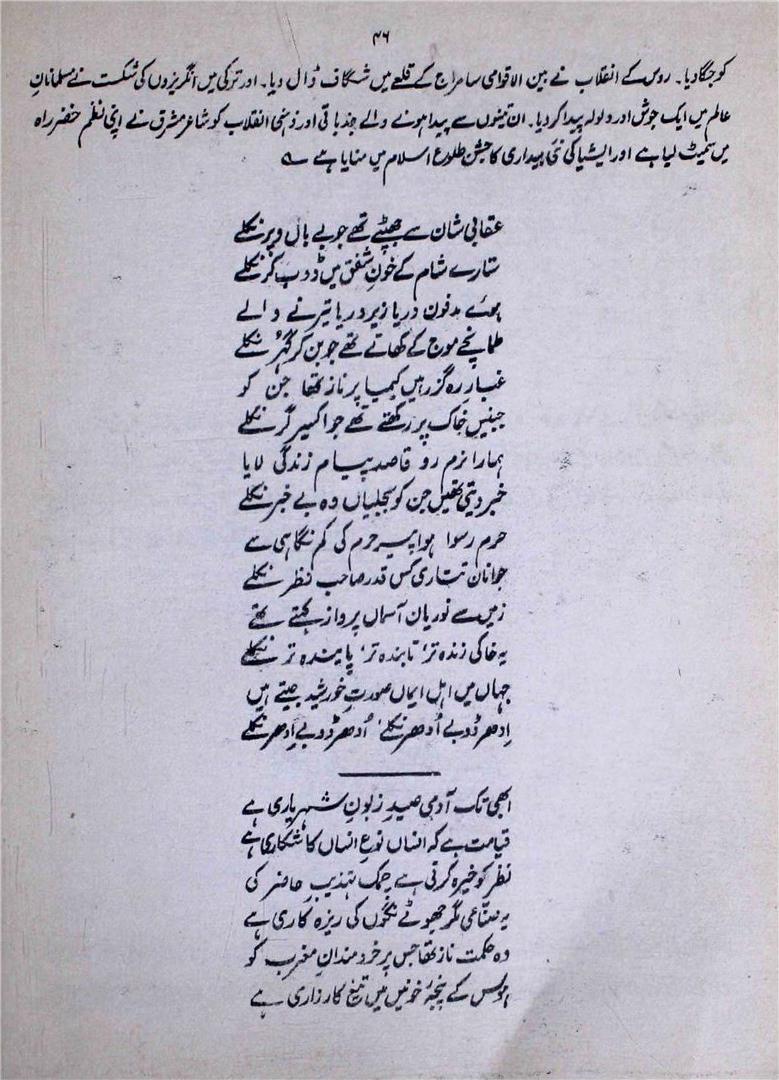 ۴۶
کو جگا دیا۔ روس کے انقلاب نے بین الاقوامی سامراج کے قلعے میں شگاف ڈال دیا۔ اور ترکی میں انگریزوں کی شکست نے مسلمانانِ
عالم میں ایک جوش اور ولولہ پیدا کر دیا۔ ان تینوں سے پیدا ہونے والے جذباتی اور ذہنی انقلاب کو شاعر مشرق نے اپنی نظم خضر راہ
میں سمیٹ لیا ہے اور ایشیا کی نئی بیداری کا جشن طلوع اسلام میں منایا ہے ؎
عقابی شان سے جھپٹے تھے جو بے بال و پر نکلے
ستارے شام کے خونِ شفق میں ڈوب کر نکلے
ہوئے مدفون دریا زیر دریا تیرنے والے
طمانچے موج کے کھاتے تھے جو بن کر گہر نکلے
غبار رہ گزر ہیں کیمیا پر ناز تھا جن کو
جبینیں خاک پر رکھتے تھے جو اکسیر گر نکلے
ہمارا نرم رو قاصد پیام زندگی لایا
خبر دیتی تھیں جن کو بجلیاں وہ بے خبر نکلے
حرم رسوا ہوا پیر حرم کی کم نگاہی سے
جوانان تتاری کس قدر صاحب نظر نکلے
زمیں سے نوریان آسماں پرواز کہتے تھے
یہ خاکی زندہ تر، تابندہ تر، پایندہ تر نکلے
جہاں میں اہل ایماں صورتِ خورشید جیتے ہیں
اِدھر ڈوبے اُدھر نکلے، اُدھر ڈوبے اِدھر نکلے
ابھی تک آدمی صیدِ زبونِ شہریاری ہے
قیامت ہے کہ انساں نوعِ انساں کا شکاری ہے
نظر کو خیرہ کرتی ہے چمک تہذیبِ حاضر کی
یہ صناعی مگر جھوٹے نگوں کی ریزہ کاری ہے
وہ حکمت ناز تھا جس پر خردمندانِ مغرب کو
ہوس کے پنجۂ خونیں میں تیغ کارزاری ہے